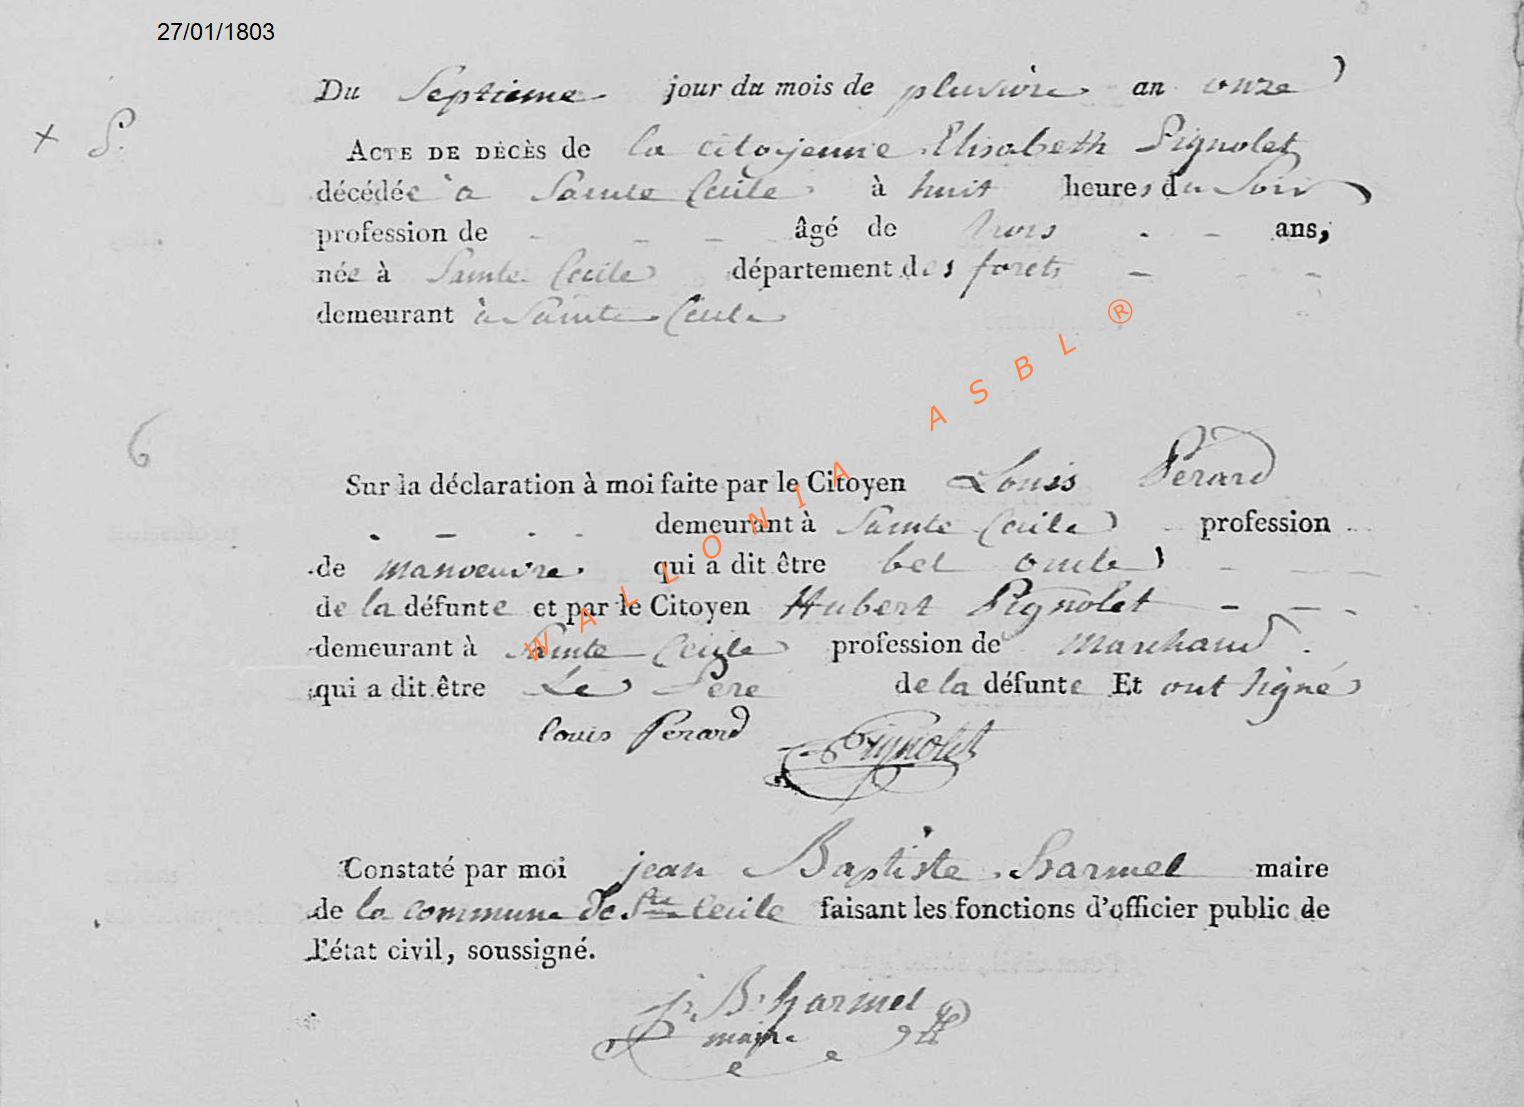 27/01/1803
Du Septieme jour du mois de pluviôse an onze
+ P.
ACTE DE DÉCÈS de la citoyenne Elisabeth Pignolet
décédée à Sainte Cecile à huit heures du Soir
profession de - - - âgé de trois - - ans,
née à Sainte Cecile département des forets -
demeurant à Sainte Cecile
6
Sur la déclaration à moi faite par le Citoyen Louis Perard
demeurant à Sainte Cecile profession
de manoeuvre qui a dit être bel oncle
de la défunte et par le Citoyen Hubert Pignolet - - -
demeurant à Sainte Cecile profession de Marchand
qui a dit être Le Pere de la défunte Et ont signé
louis Perard Pignolet
Constaté par moi jean Baptiste harmel maire
de la commune de Ste Cecile faisant les fonctions d'officier public de
l'état civil, soussigné.
j. B. harmel
maire
WALLONIA ASBL ®